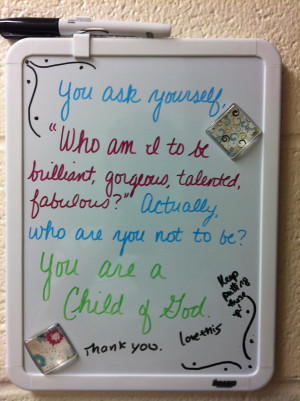 You ask yourself,
"Who am I to be
brilliant, gorgeous, talented,
fabulous?" Actually,
who are you not to be?
You are a
Child of God.
Keep
putting
these
up!
Love this
Thank you.